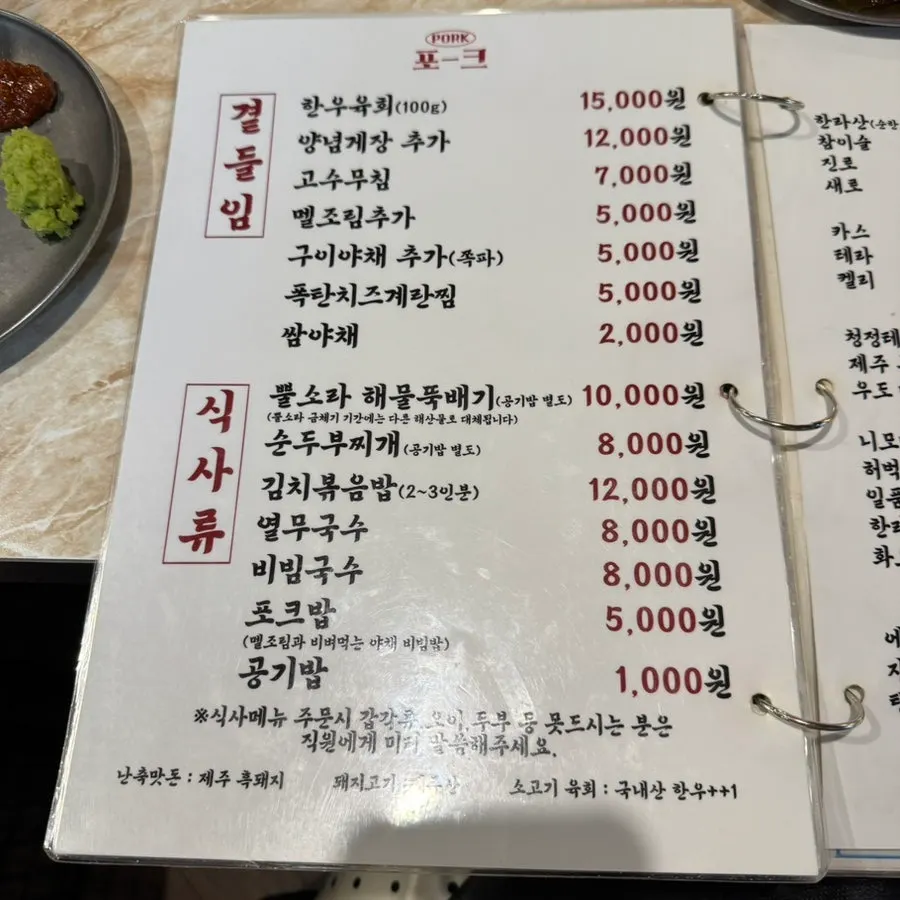 PORK
포-크
곁들임
한우육회(100g) 15,000원
양념게장 추가 12,000원
고수무침 7,000원
멜조림추가 5,000원
구이야채 추가(쪽파) 5,000원
폭탄치즈계란찜 5,000원
쌈야채 2,000원
식사류
뿔소라 해물뚝배기(공기밥 별도) 10,000원
(뿔소라 금채기 기간에는 다른 해산물로 대체됩니다)
순두부찌개(공기밥 별도) 8,000원
김치볶음밥(2~3인분) 12,000원
열무국수 8,000원
비빔국수 8,000원
포크밥 5,000원
(멜조림과 비벼먹는 야채 비빔밥)
공기밥 1,000원
※식사메뉴 주문시 갑각류, 오이, 두부 등 못드시는 분은
직원에게 미리 말씀해주세요.
난축맛돈 : 제주 흑돼지 돼지고기 : 소고기 육회 : 국내산 한우++1
한라산(순한
참이슬
진로
새로
카스
테라
켈리
청정테
제주
우도
니모
허벅
일품
한라